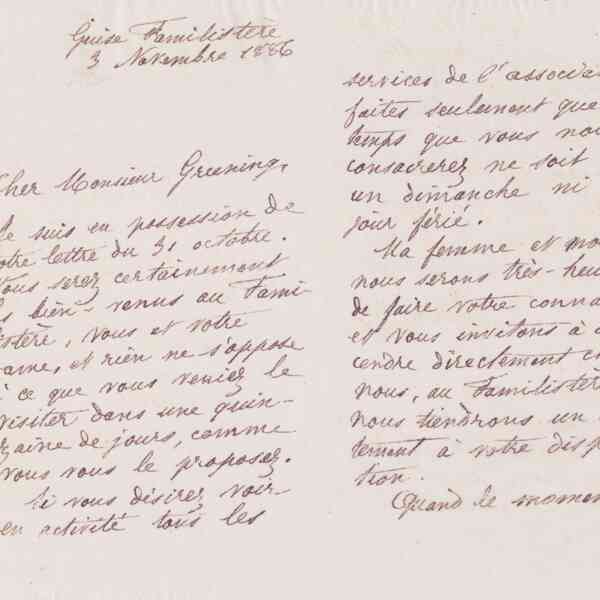 Guise Familistère
3 Novembre 1886
Cher Monsieur Greening,
Je suis en possession de
votre lettre du 31 octobre.
Vous serez certainement
les bien-venus au Fami-
listère, vous et votre
dame, et rien ne s'oppose
à ce que vous veniez le
visiter dans une quin-
zaine de jours, comme
vous vous le proposez.
Si vous désirez voir
en activité tous les
services de l'associa
faites seulement que
temps que vous nou
consacrerez ne soit
un dimanche ni
jour férié.
Ma femme et mo
nous serons très-heu
de faire votre conna
et vous invitons à d
cendre directement ch
nous, au Familistèr
nous tiendrons un
tement à votre disp
tion.
Quand le momen